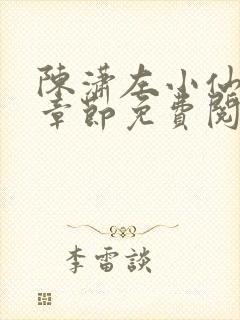 陳瀟左小仙
章節免費閱
李雷談